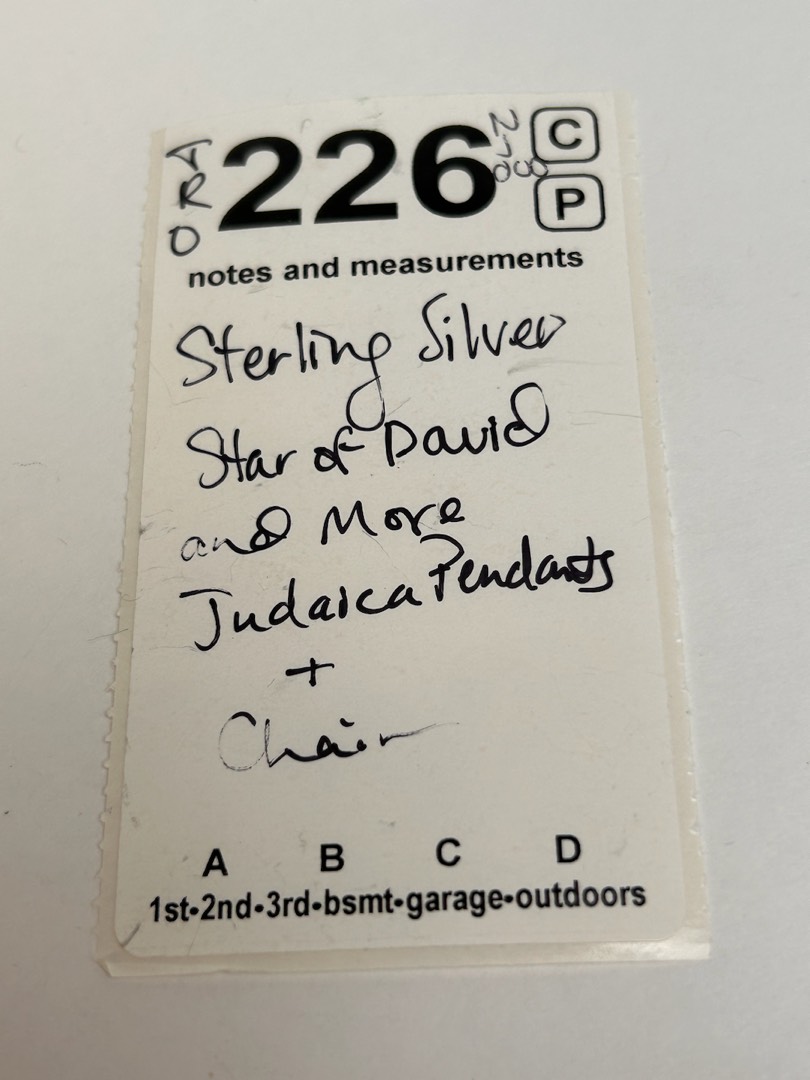 226
C
P
notes and measurements
Sterling Silver
Star of David
and More
Judaica Pendants
+
Chain
A B C D
1st•2nd•3rd•bsmt•garage•outdoors